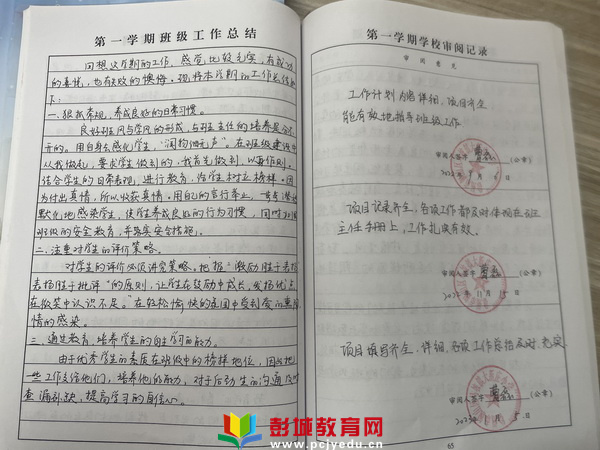 第一学期班级工作总结
回想这学期的工作，感觉比较充实，有成功
的喜悦，也有失败的懊悔。现将本学期的工作总结如
下：
一、狠抓常规，养成良好的日常习惯。
良好班风与学风的形成，与班主任的培养是分不
开的。用自身去感化学生，“润物细无声”。在班级建设中
从我做起，要求学生做到的，我首先做到，以身作则。
结合学生的日常表现，进行教育，给学生树立榜样。因
为付出真情，所以收获真情。用自己的言行举止，
默化地感染学生，使学生养成良好的行为习惯，同时加强
班级的安全教育，并落实安全措施。
二、注重对学生的评价策略。
对学生的评价必须讲究策略。把握“激励胜于表扬
表扬胜于批评”的原则，让学生在鼓励中成长，发扬优点
在微笑中认识不足。在轻松愉快的氛围中受到爱的熏陶
情的感染。
三、通过教育，培养学生的自主学习的能力。
由于优秀学生的素质在班级中的榜样地位，因此把
一些工作交给他们，培养他们的能力，对于后进生的沟通及时
查漏补缺，提高学习的自信心。
第一学期学校审阅记录
审阅意见
工作计划内容详细，项目齐全
能有效地指导班级工作
审阅人签字
（公章）
项目记录齐全，各项工作都及时体现在班
主任手册上，工作扎实有效。
审阅人签字
（公章）
2022年11月15日
项目填写齐全、详细，各项工作总结及时、充实
审阅人签字
（公章）
2023年1月5日
65
彭城教育网
www.pcjyedu.cn